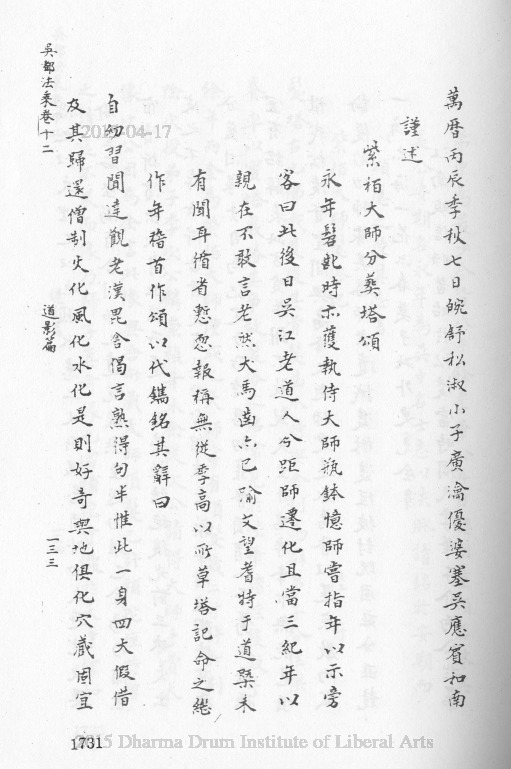 萬曆丙辰季秋七日皖舒松淑小子廣瀹優婆塞吳應賓和南
謹述
紫栢大師分葬塔頌
永年髫齔時亦獲執侍大師瓶鉢憶師嘗指年以示旁
客曰此後日吳江老道人今距師遷化且當三紀年以
親在不敢言老然犬馬齒亦已踰艾望耆特于道槩未
有聞耳循省慙恧報稱無從季高以所草塔記命之繼
作年稽首作頌以代鐫銘其辭曰
自幼習聞達觀老漢毘舍偈言熟得句半惟此一身四大假借
及其歸還僧制火化風化水化是則好奇與地俱化穴藏固宜
吳都法乘卷十二
道影篇
一三三
1731
2015-04-17
2015 Dharma Drum Institute of Liberal Arts